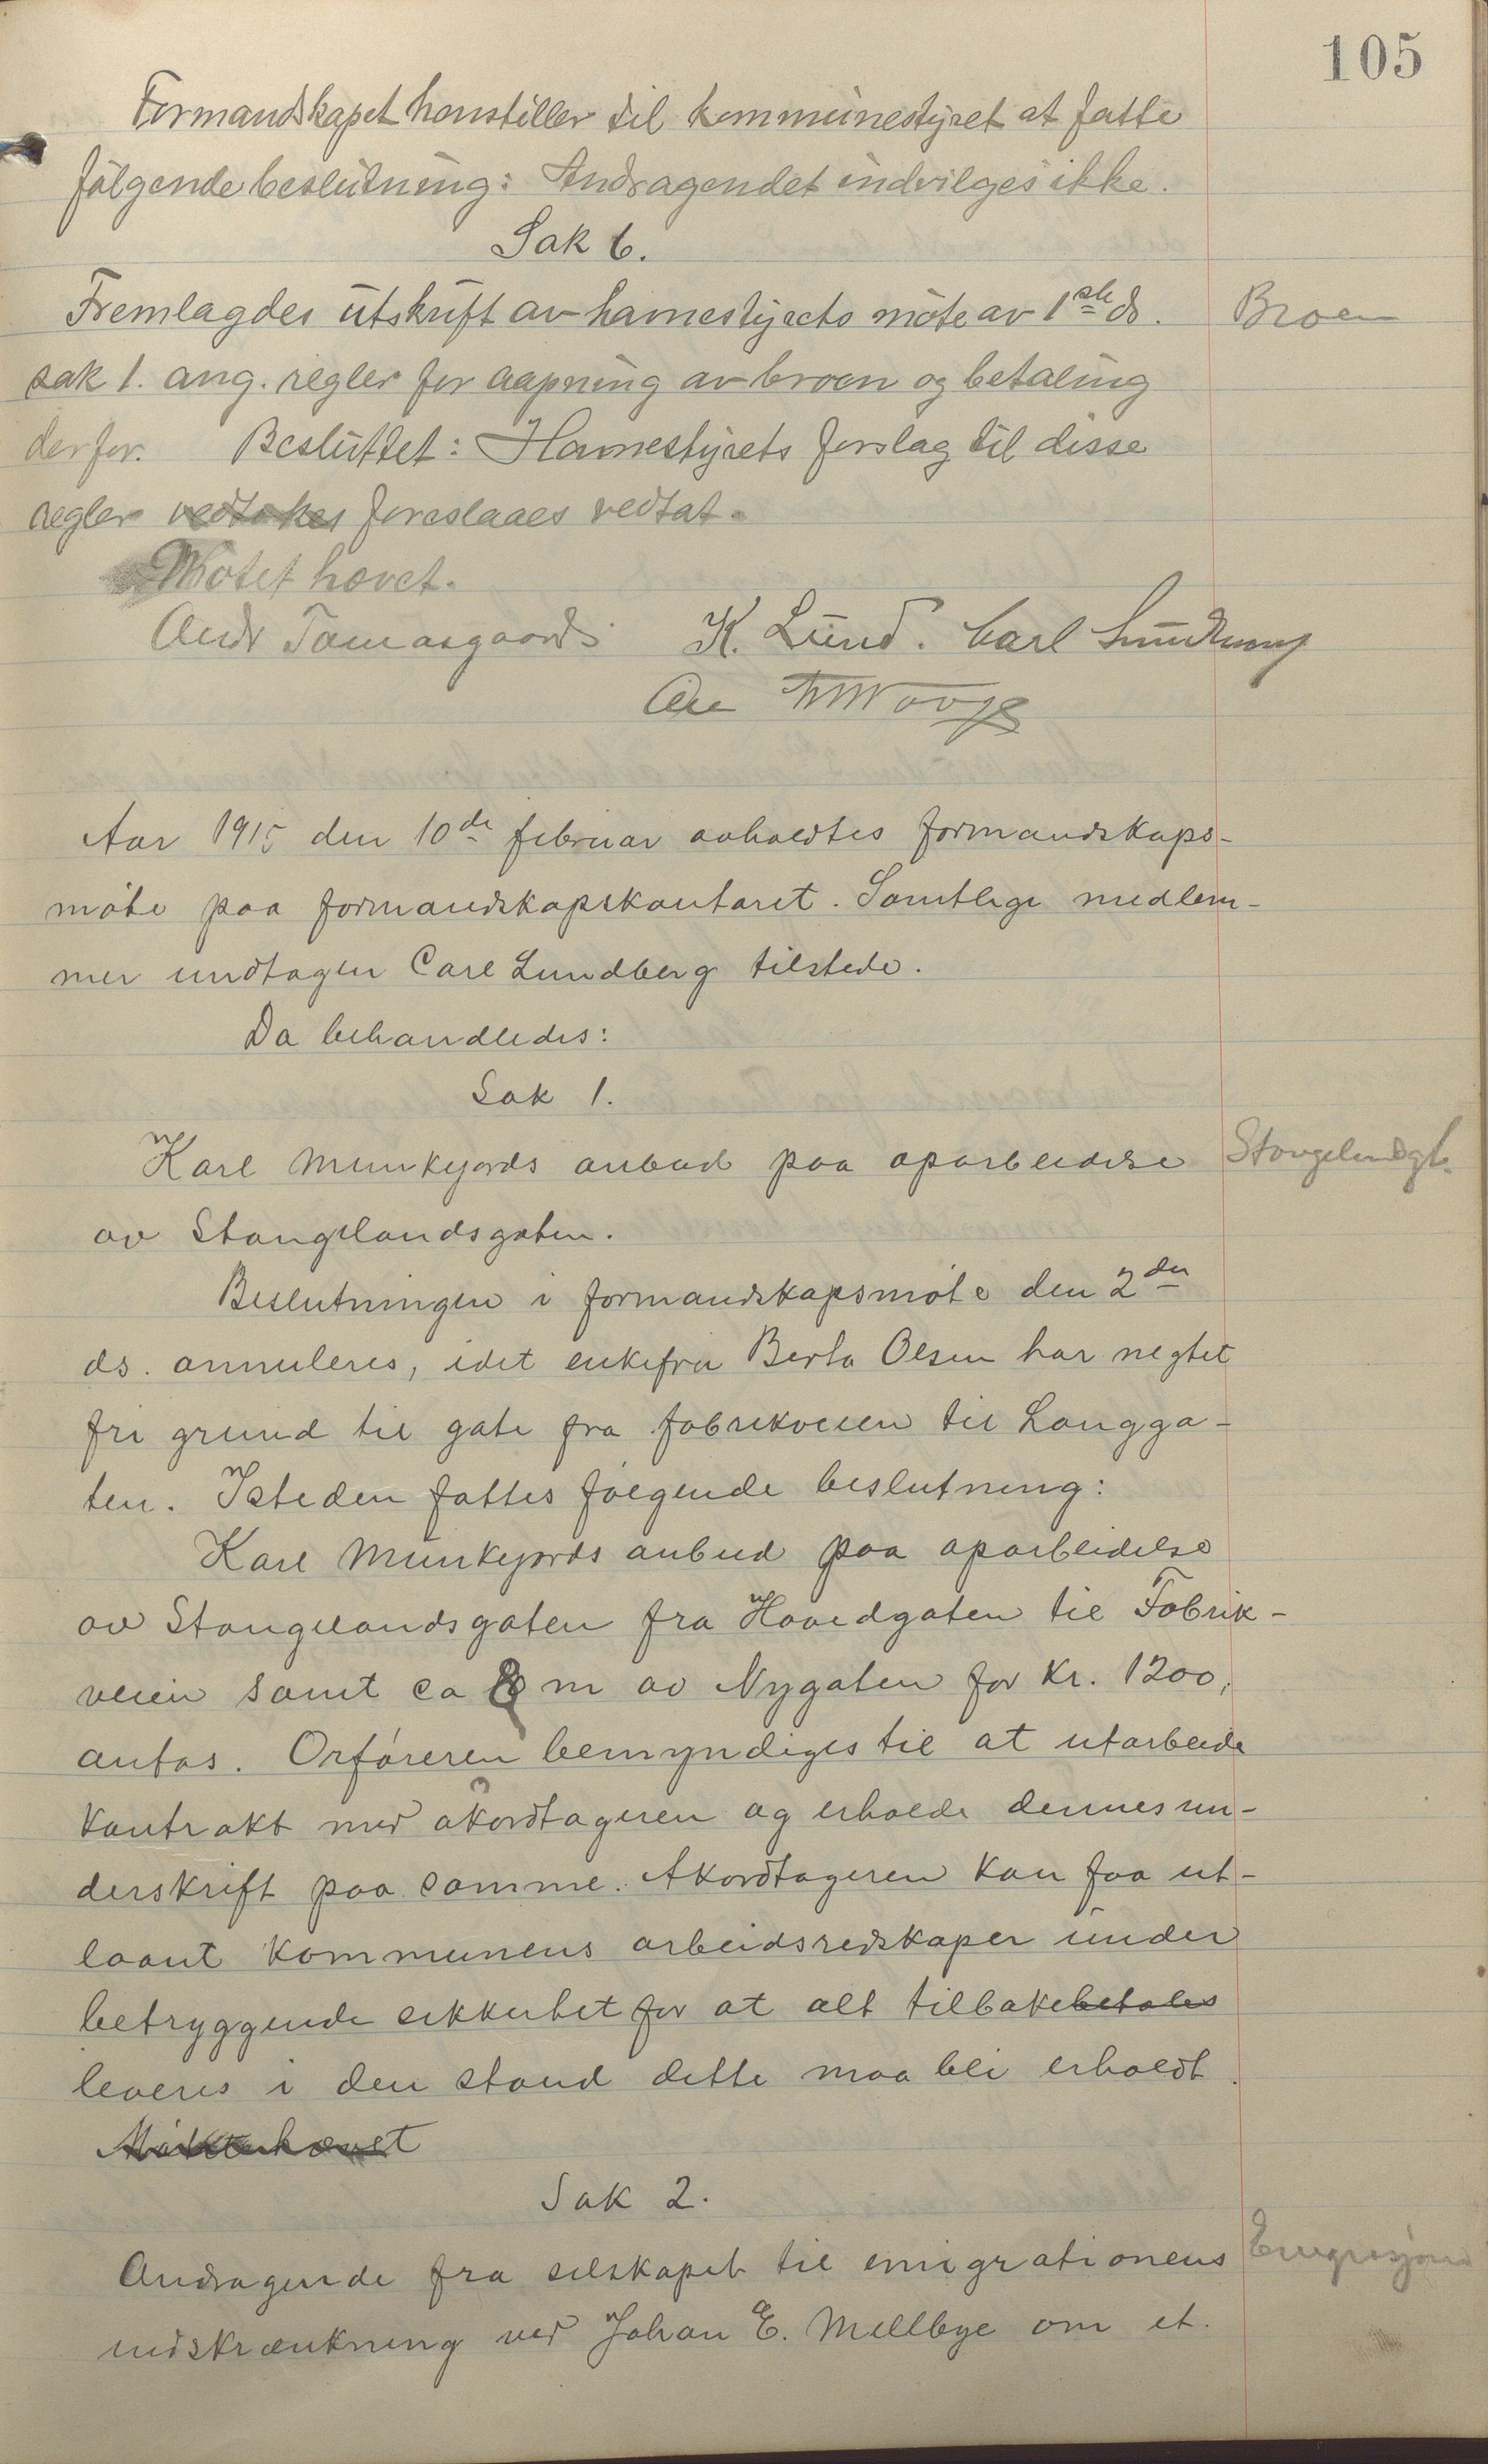 105
Formandskapet henstiller til kommunestyret at fatte
følgende beslutning: Andragendet indvilges ikke.
Sak 6.
Fremlagdes utskrift av havnestyrets møte av 1ste ds.
Broen
sak 1. ang. regler for aapning av broen og betaling
derfor. Besluttet: Havnestyrets forslag til disse
regler vedtakes foreslaaes vedtat.
Møtet hævet.
Andr Tomasgaard K. Lund. Carl Lundberg
Aar 1915 den 10de februar avholdtes formandskaps-
møte paa formandskapskontoret. Samtlige medlem-
mer undtagen Carl Lundberg tilstede.
Da behandledes:
Sak 1.
Karl Munkejords anbud paa oparbeidelse
Stangelandsgt.
av Stangelandsgaten.
Beslutningen i formandskapsmøte den 2den
ds. annuleres, idet enkefru Berta Olsen har negtet
fri grund til gate fra fabrikveien til Langga-
ten. Isteden fattes følgende beslutning:
Karl Munkejords anbud paa oparbeidelse
av Stangelandsgaten fra Hovedgaten til Fabrik-
veien samt ca 8 m av Nygaten for kr. 1200,
antas. Orføreren bemyndiges til at utarbeide
kontrakt med akordtageren og erholde dennes un-
derskrift paa samme. Akordtageren kan faa ut-
laant kommunens arbeidsredskaper under
betryggende sikkerhet for at alt tilbakebetales
leveres i den stand dette maa bli erholdt.
Møtet hævet
Sak 2.
Andragende fra selskapet til emigrationens
indskrænkning ved Johan E. Mellbye om et.